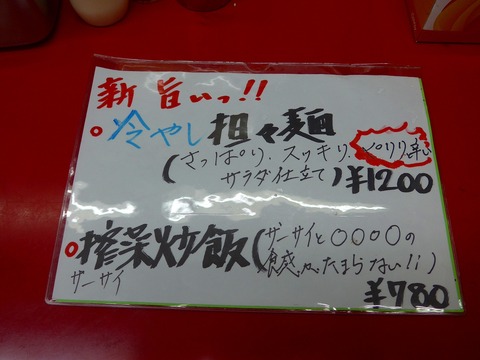 新 旨いっ!!
冷やし担々麺
(さっぱり、スッキリ、ピリリ辛い
サラダ仕立て) ¥1200
搾菜炒飯(ザーサイと〇〇〇〇の
ザーサイ 食感がたまらない!!)
¥780